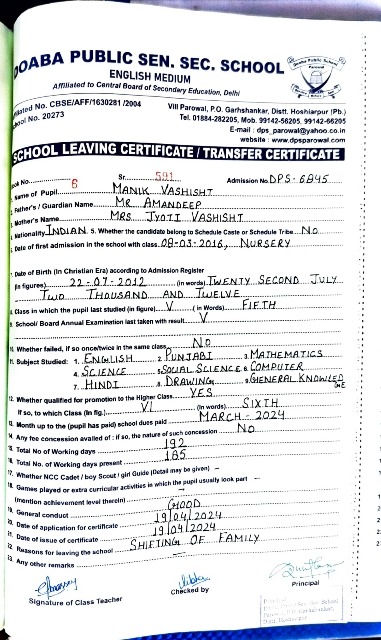 DOABA PUBLIC SEN. SEC. SCHOOL
ENGLISH MEDIUM
Affiliated to Central Board of Secondary Education, Delhi
Affiliated No. CBSE/AFF/1630281 /2004
School No. 20273
Vill Parowal, P.O. Garhshankar, Distt. Hoshiarpur (Pb.)
Tel. 01884-282205, Mob. 99142-56205, 99142-66205
E-mail : dps_parowal@yahoo.co.in
website : www.dpsparowal.com
SCHOOL LEAVING CERTIFICATE / TRANSFER CERTIFICATE
Book No. 6 Sr. 591 Admission No DPS-6845
1. Name of Pupil MANIK VASHISHT
2. Father's / Guardian Name MR. AMANDEEP
3. Mother's Name MRS JYOTI VASHISHT
4. Nationality INDIAN 5. Whether the candidate belong to Schedule Caste or Schedule Tribe NO
6. Date of first admission in the school with class 09-03-2016, NURSERY
7. Date of Birth (In Christian Era) according to Admission Register
(in figures) 22-07-2012 (in words) TWENTY SECOND JULY
TWO THOUSAND AND TWELVE
8. Class in which the pupil last studied (in figure) V (in Words) FIFTH
9. School/ Board Annual Examination last taken with result V
10. Whether failed, if so once/twice in the same class NO
11. Subject Studied: 1. ENGLISH 2. PUNJABI 3. MATHEMATICS
4. SCIENCE 5. SOCIAL SCIENCE 6. COMPUTER
7. HINDI 8. DRAWING 9. GENERAL KNOWLEDGE
12. Whether qualified for promotion to the Higher Class YES
If so, to which Class (In fig.) VI (in words) SIXTH
13. Month up to the (pupil has paid) school dues paid MARCH-2024
14. Any fee concession availed of : if so, the nature of such concession NO
15. Total No of Working days 192
16. Total No. of Working days present 185
17. Whether NCC Cadet / boy Scout / girl Guide (Detail may be given) –
18. Games played or extra curricular activities in which the pupil usually look part –
(mention achievement level therein)
19. General conduct GOOD
20. Date of application for certificate 19/04/2024
21. Date of issue of certificate 19/04/2024
22. Reasons for leaving the school SHIFTING OF FAMILY
23. Any other remarks —
Signature of Class Teacher
Checked by
Principal